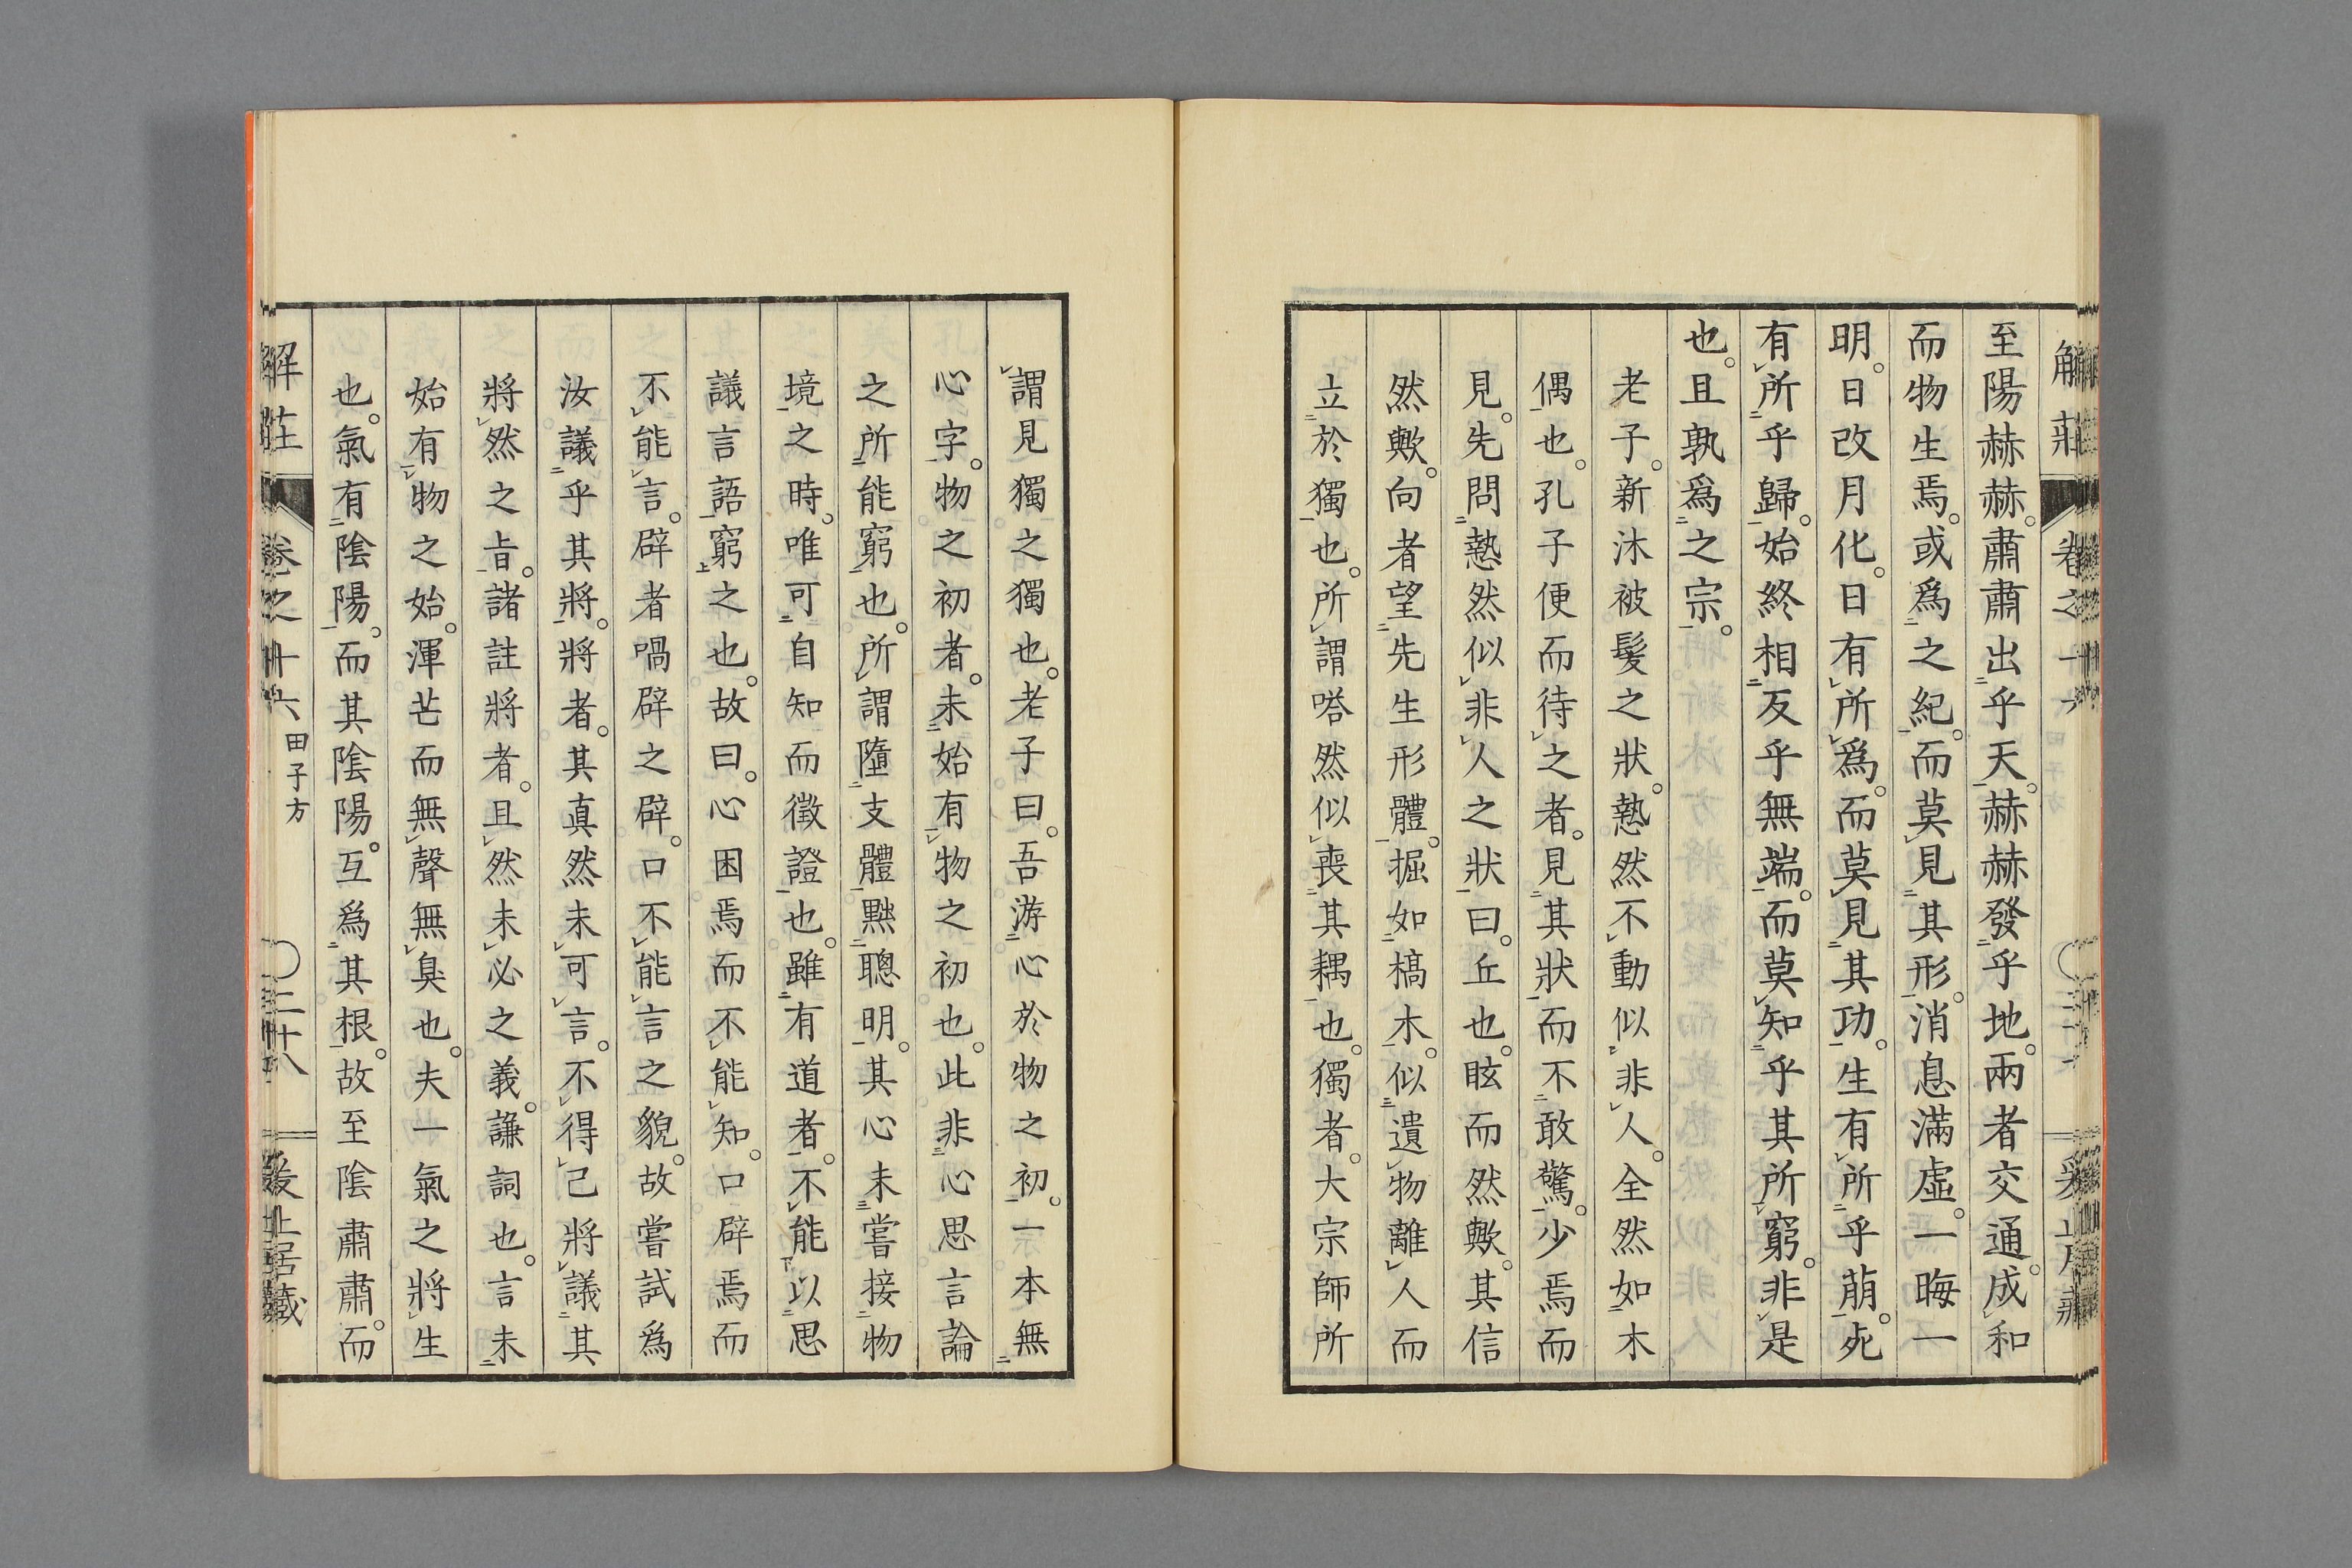 至陽赫赫。肅肅出乎天。赫赫發乎地。兩者交通。成和
而物生焉。或爲之紀。而莫見其形。消息滿虛。一晦一
明。日改月化。日有所爲。而莫見其功。生有所乎萠。死
有所乎歸。始終相反乎無端。而莫知乎其所窮。非是
也。且孰爲之宗。
老子。新沐被髮之狀。慹然不動似非人。全然如木
偶也。孔子便而待之者。見其狀而不敢驚。少焉而
見。先問慹然似非人之狀曰。丘也。眩而然歟。其信
然歟。向者望先生形體。掘如槁木。似遺物離人而
立於獨也。所謂嗒然似喪其耦也。獨者。大宗師所
謂見獨之獨也。老子曰。吾游心於物之初。一本無
心字。物之初者。未始有物之初也。此非心思言論
之所能窮也。所謂墮支體黜聰明。其心未嘗接物
境之時。唯可自知而徵證也。雖有道者。不能以思
議言語窮之也。故曰。心困焉而不能知。口辟焉而
不能言。辟者喎辟之辟。口不能言之貌。故嘗試爲
汝議乎其將。將者。其眞然未可言。不得已將議其
將然之㫖。諸註將者。且然未必之義。謙詞也。言未
始有物之始。渾芒而無聲無臭也。夫一氣之將生
也。氣有陰陽。而其陰陽。互爲其根。故至陰肅肅。而
解莊
卷之十六
田子方
〇二十八
爰止居藏